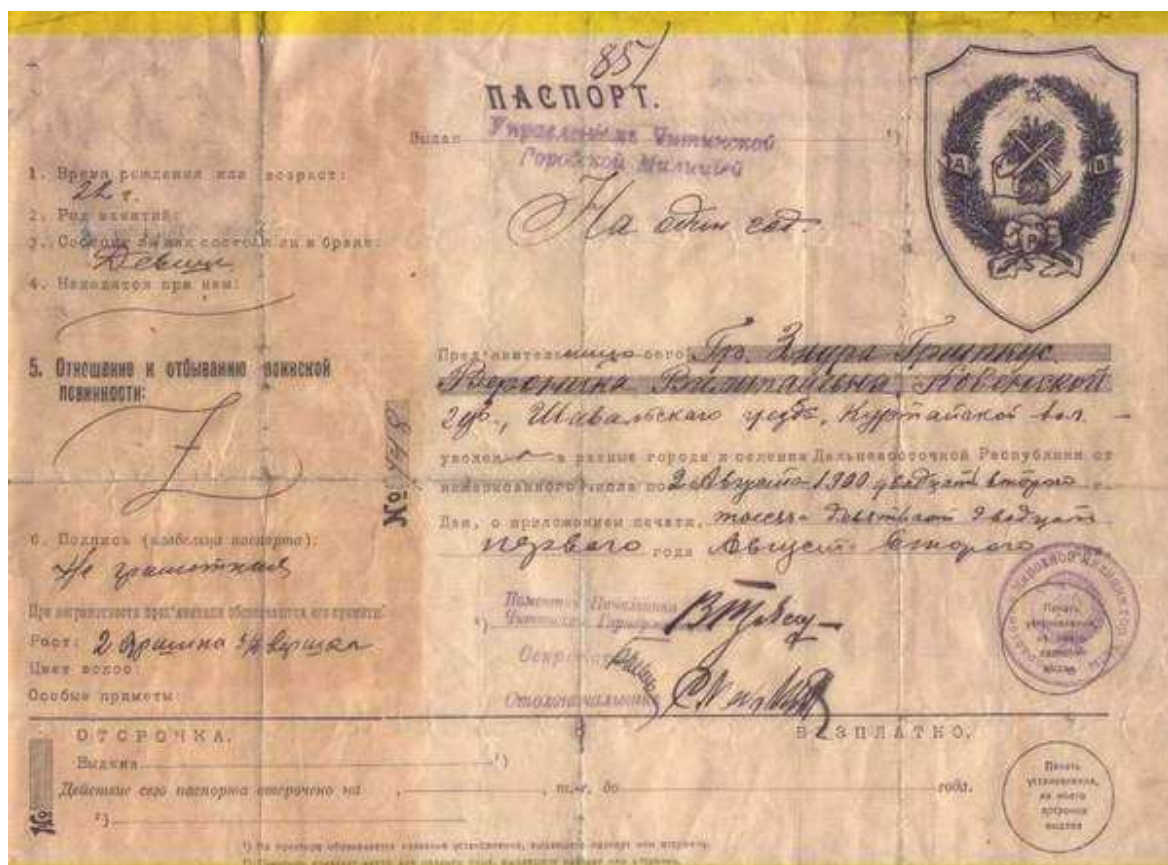 851
ПАСПОРТ.
Выдан Управление Читинской ¹)
Городской Милиции
На один год.
Д В
Р
1. Время рождения или возраст:
22 г.
2. Род занятий:
3. Состоит ли или состоял ли в браке:
Девица
4. Находятся при нем:
5. Отношение к отбыванию воинской
повинности:
6. Подпись (владельца паспорта):
Не грамотная
При неграмотности пред'явителя обозначаются его приметы:
Рост: 2 аршина вершка
Цвет волос:
Особые приметы:
№ 748
Пред'явительница сего Гр.
Ковенской
губ., Шавальского уезда, Куртайской вол. –
уволен в разные города и селения Дальневосточной Республики от
нижеписанного числа по 2 Августа 1922 двадцать второго г.
Дан, с приложением печати, тысяча девятьсот двадцать
первого года Августа второго
Помощник Начальника
⁴) Читинской
Секретарь
Столоначальник
Печать
установления,
из коего
паспорт
выдан
ОТСРОЧКА.
БЕЗПЛАТНО.
Выдана ¹)
Действие сего паспорта отсрочено на , т.-е. до года.
²)
№
Печать
установления,
из коего
отсрочка
выдана
¹) На пробеле обозначается название установления, выдавшего паспорт или отсрочку.